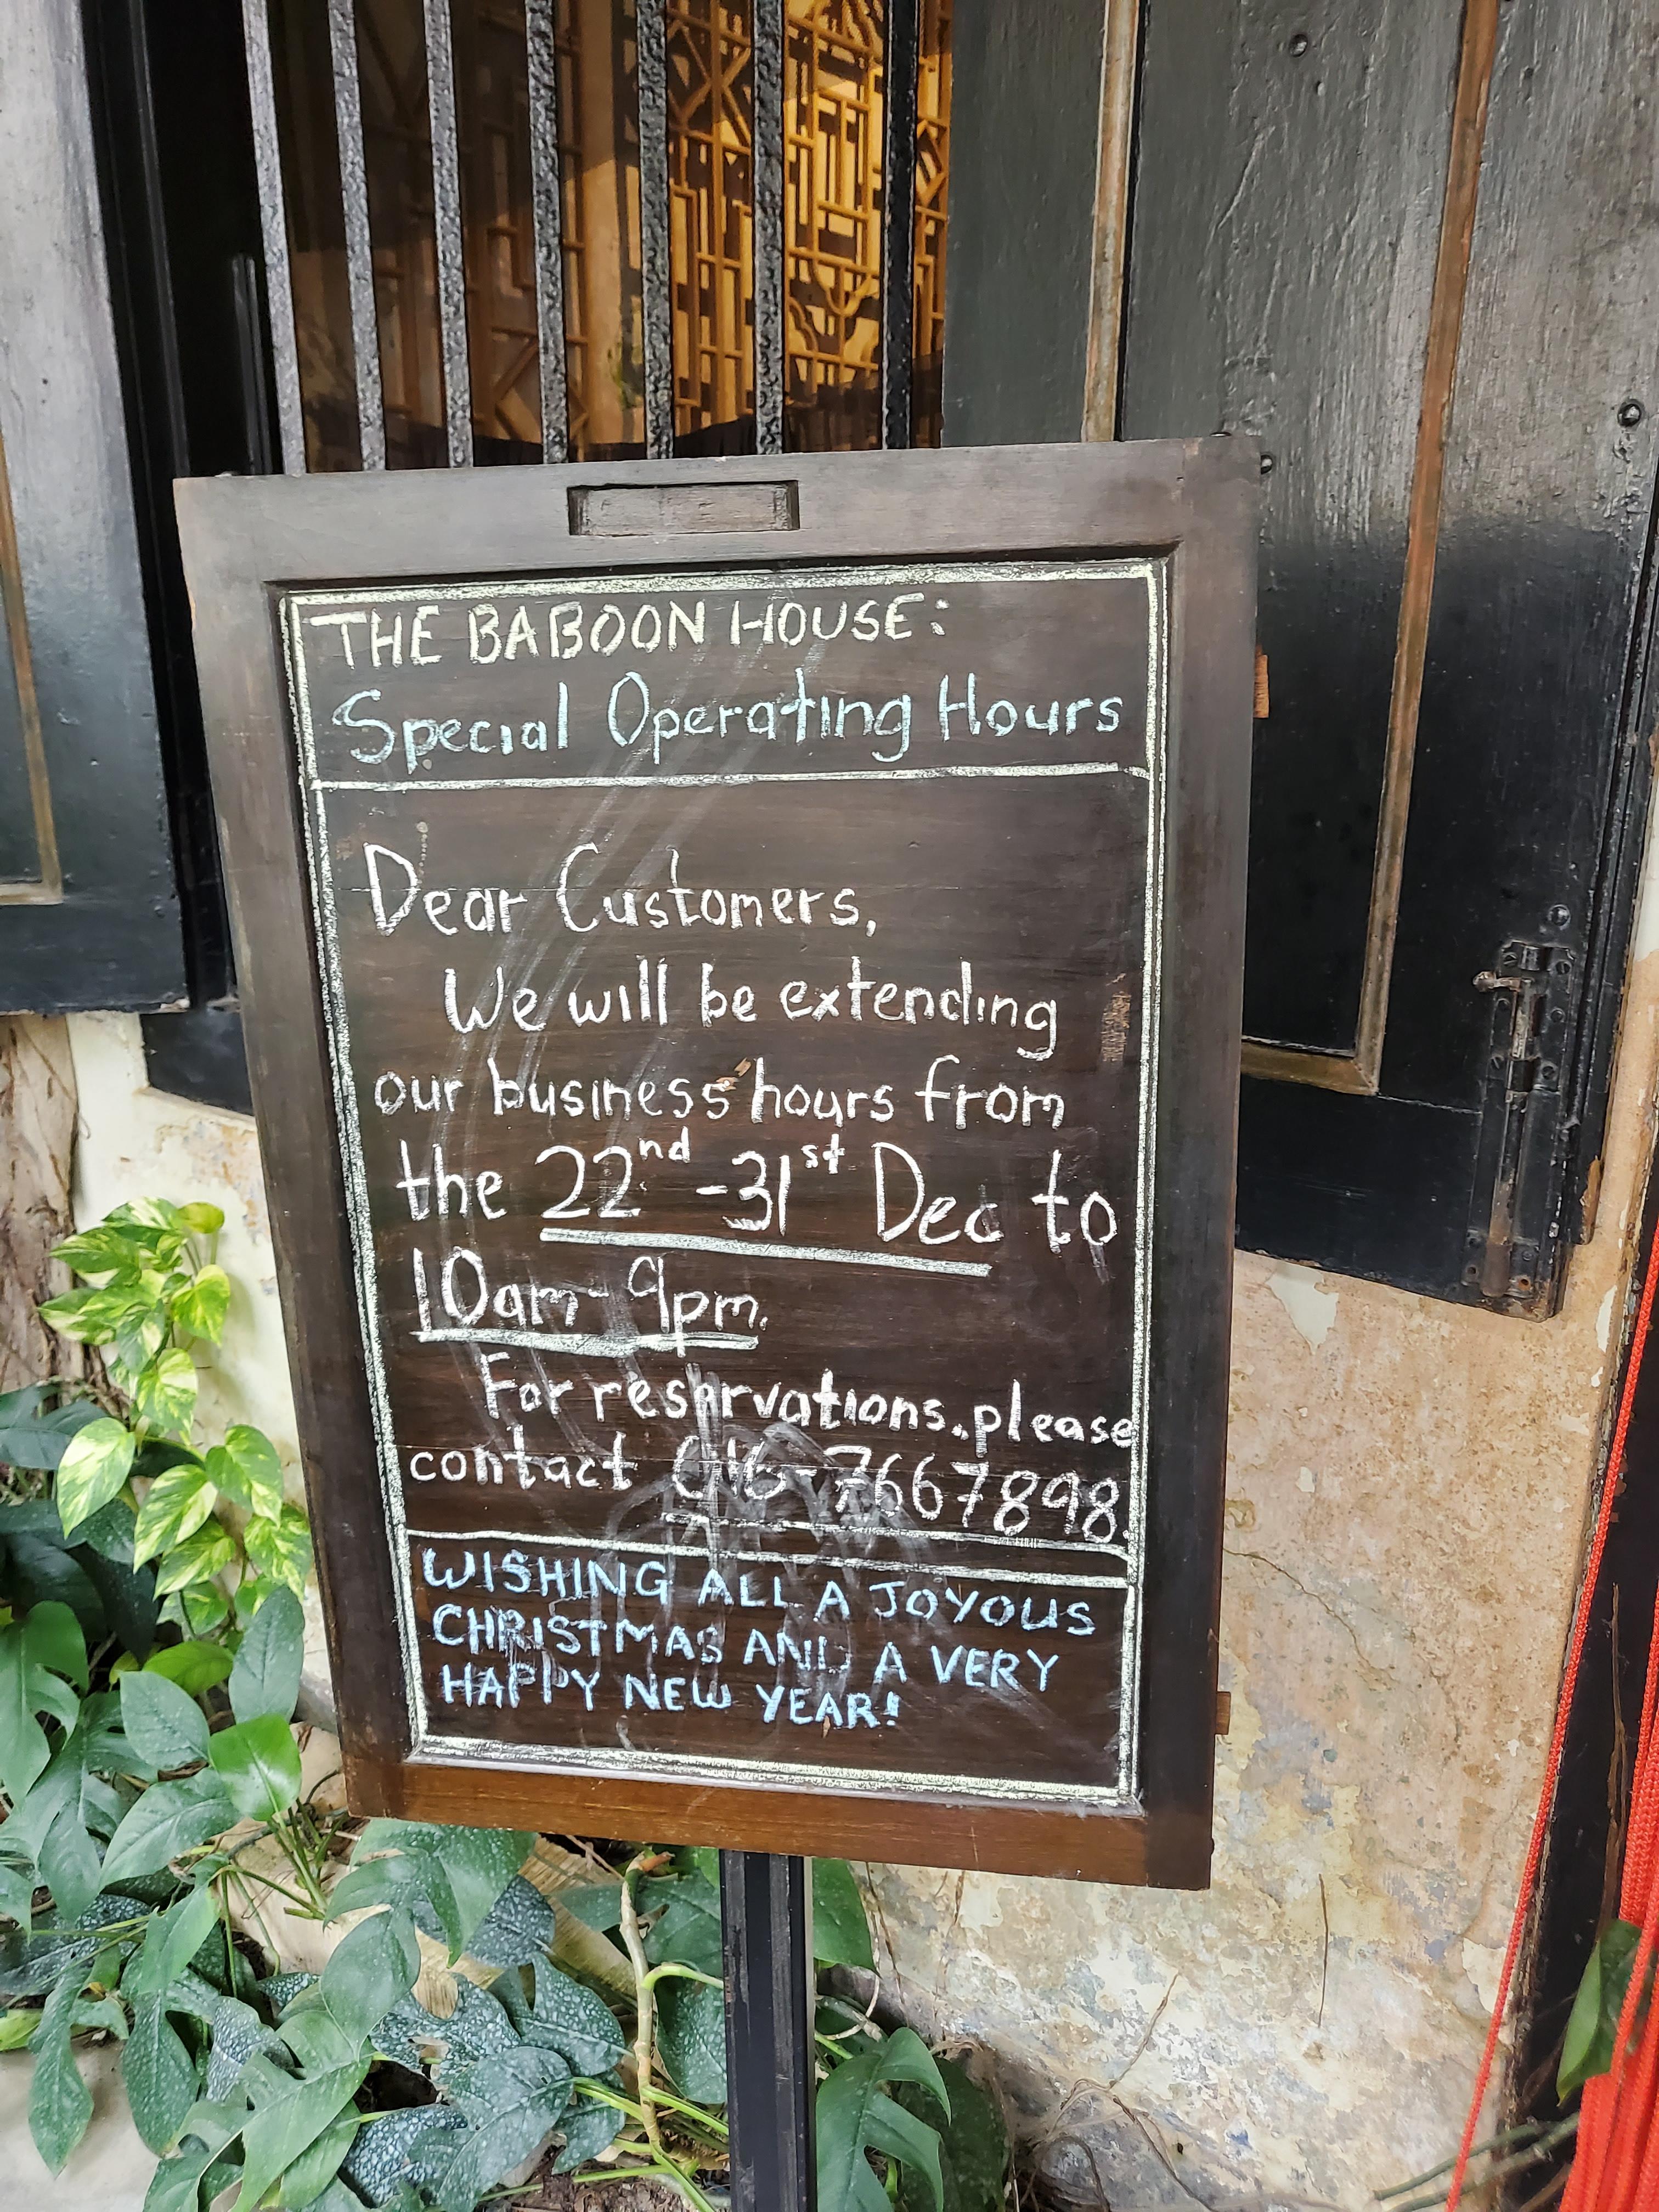 THE BABOON HOUSE:
Special Operating Hours
Dear Customers,
We will be extending
our business hours from
the 22nd -31st Dec to
10am- 9pm.
For reservations, please
contact 016-7667898.
WISHING ALL A JOYOUS
CHRISTMAS AND A VERY
HAPPY NEW YEAR!